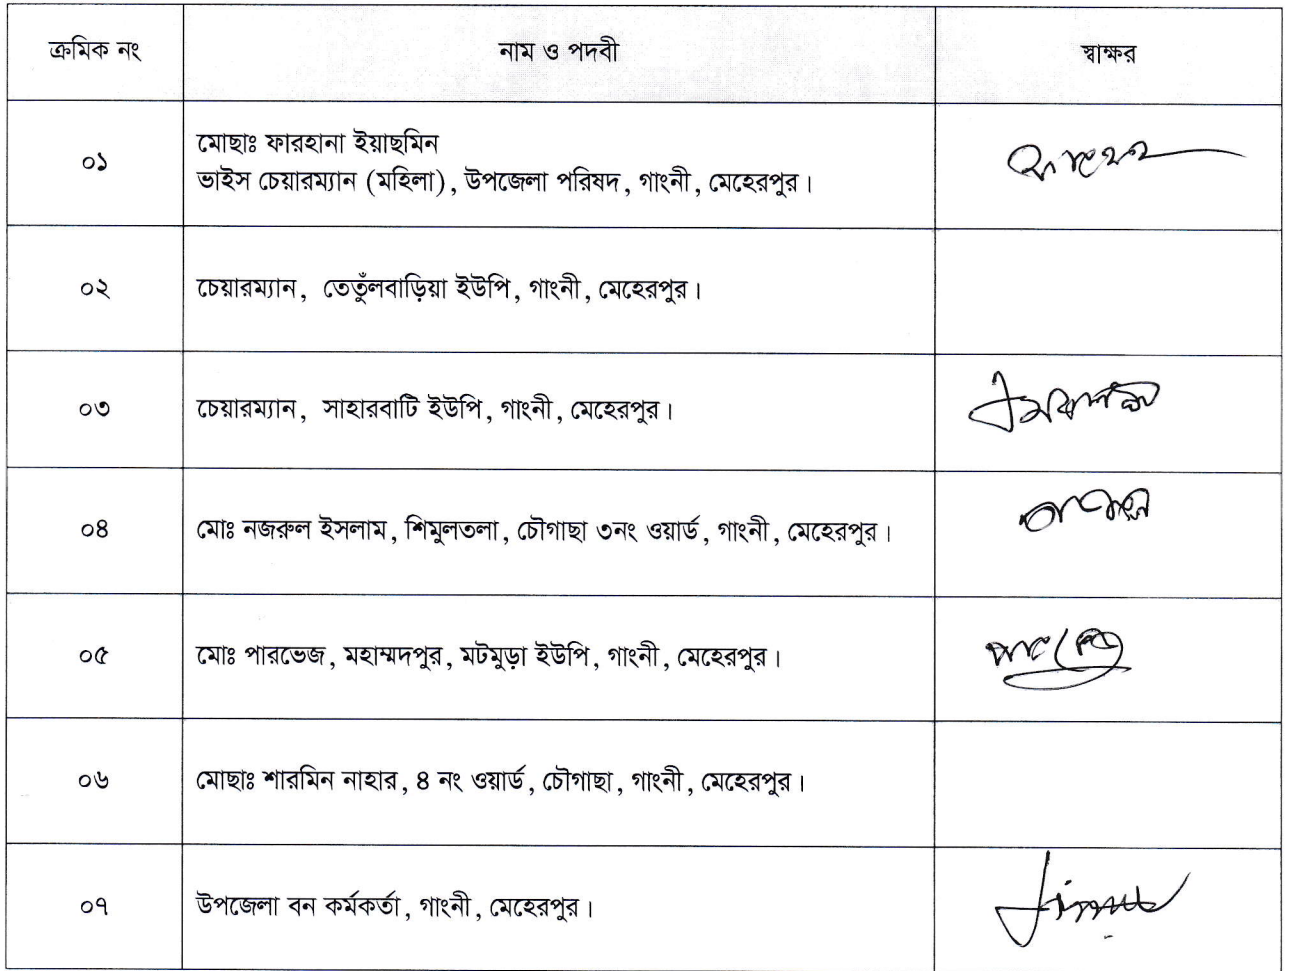 ক্রমিক নং নাম ও পদবী স্বাক্ষর
০১ মোছাঃ ফারহানা ইয়াছমিন
ভাইস চেয়ারম্যান (মহিলা), উপজেলা পরিষদ, গাংনী, মেহেরপুর।
০২ চেয়ারম্যান, তেতুঁলবাড়িয়া ইউপি, গাংনী, মেহেরপুর।
০৩ চেয়ারম্যান, সাহারবাটি ইউপি, গাংনী, মেহেরপুর।
০৪ মোঃ নজরুল ইসলাম, শিমুলতলা, চৌগাছা ৩নং ওয়ার্ড, গাংনী, মেহেরপুর।
০৫ মোঃ পারভেজ, মহাম্মদপুর, মটমুড়া ইউপি, গাংনী, মেহেরপুর।
০৬ মোছাঃ শারমিন নাহার, ৪ নং ওয়ার্ড, চৌগাছা, গাংনী, মেহেরপুর।
০৭ উপজেলা বন কর্মকর্তা, গাংনী, মেহেরপুর।